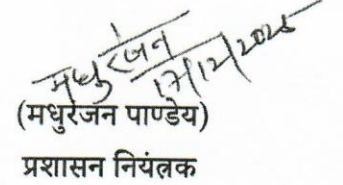 मधुरंजन
17/12/2025
(मधुरंजन पाण्डेय)
प्रशासन नियंत्रक